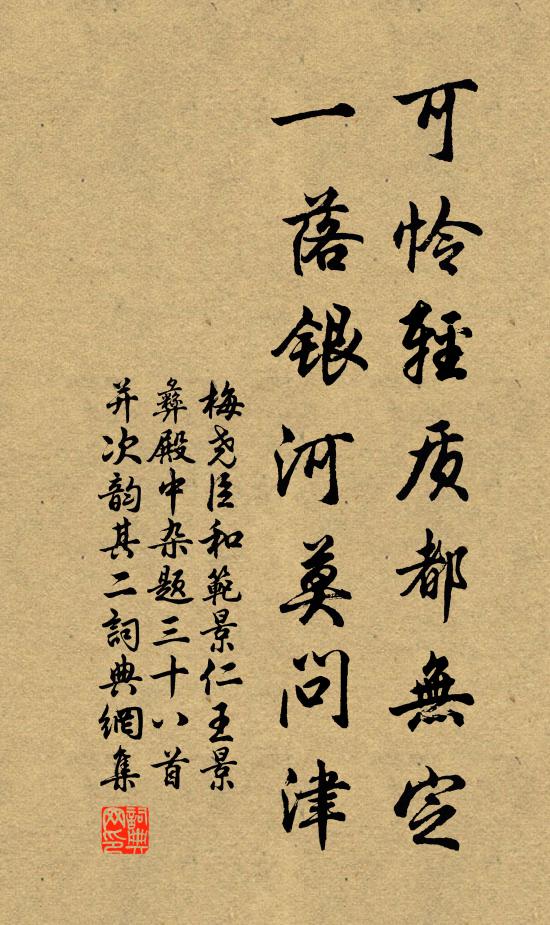 可怜輕质都無定
一落银河莫问津
梅尧臣和範景仁王景
彝殿中杂题三十八首
并次韵其二詞典網集
詞典网印